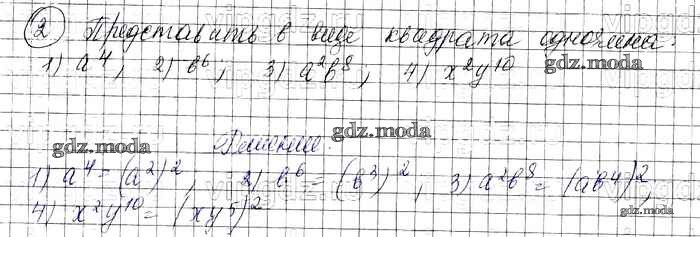 2 Представить в виде квадрата одночлена:
1) a⁴, 2) b⁶; 3) a²b⁸; 4) x²y¹⁰ gdz.moda
gdz.moda Решение gdz.moda
1) a⁴ = (a²)², 2) b⁶ = (b³)²; 3) a²b⁸ = (ab⁴)²,
4) x²y¹⁰ = (xy⁵)² gdz.moda